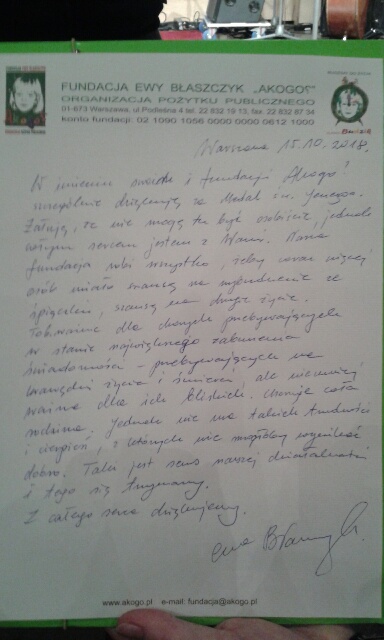 FUNDACJA EWY BŁASZCZYK „AKOGO?"
ORGANIZACJA POŻYTKU PUBLICZNEGO
01-673 Warszawa, ul.Podleśna 4 tel. 22 832 19 13; fax. 22 832 87 34
konto fundacji: 02 1090 1056 0000 0000 0612 1000
Warszawa 15.10.2018.
W imieniu swoim i fundacji Akogo?
dziękuję za Medal św. Jerzego.
Żałuję, że nie mogę tu być osobiście, jednak
całym sercem jestem z Wami. Nasza
fundacja robi wszystko, żeby coraz więcej
osób miało szansę na wybudzenie ze
śpiączki, szansę na drugie życie.
dla chorych przebywających
w stanie zaburzenia
świadomości – przebywających na
krawędzi życia i śmierci, ale
dla ich bliskich. cała
rodzina. Jednak nie ma takich trudności
i cierpień, z których nie mogłoby wyniknąć
dobro. Taki jest sens naszej działalności
i tego się trzymamy.
Z całego serca dziękujemy.
Ewa Błaszczyk
www.akogo.pl e-mail: fundacja@akogo.pl